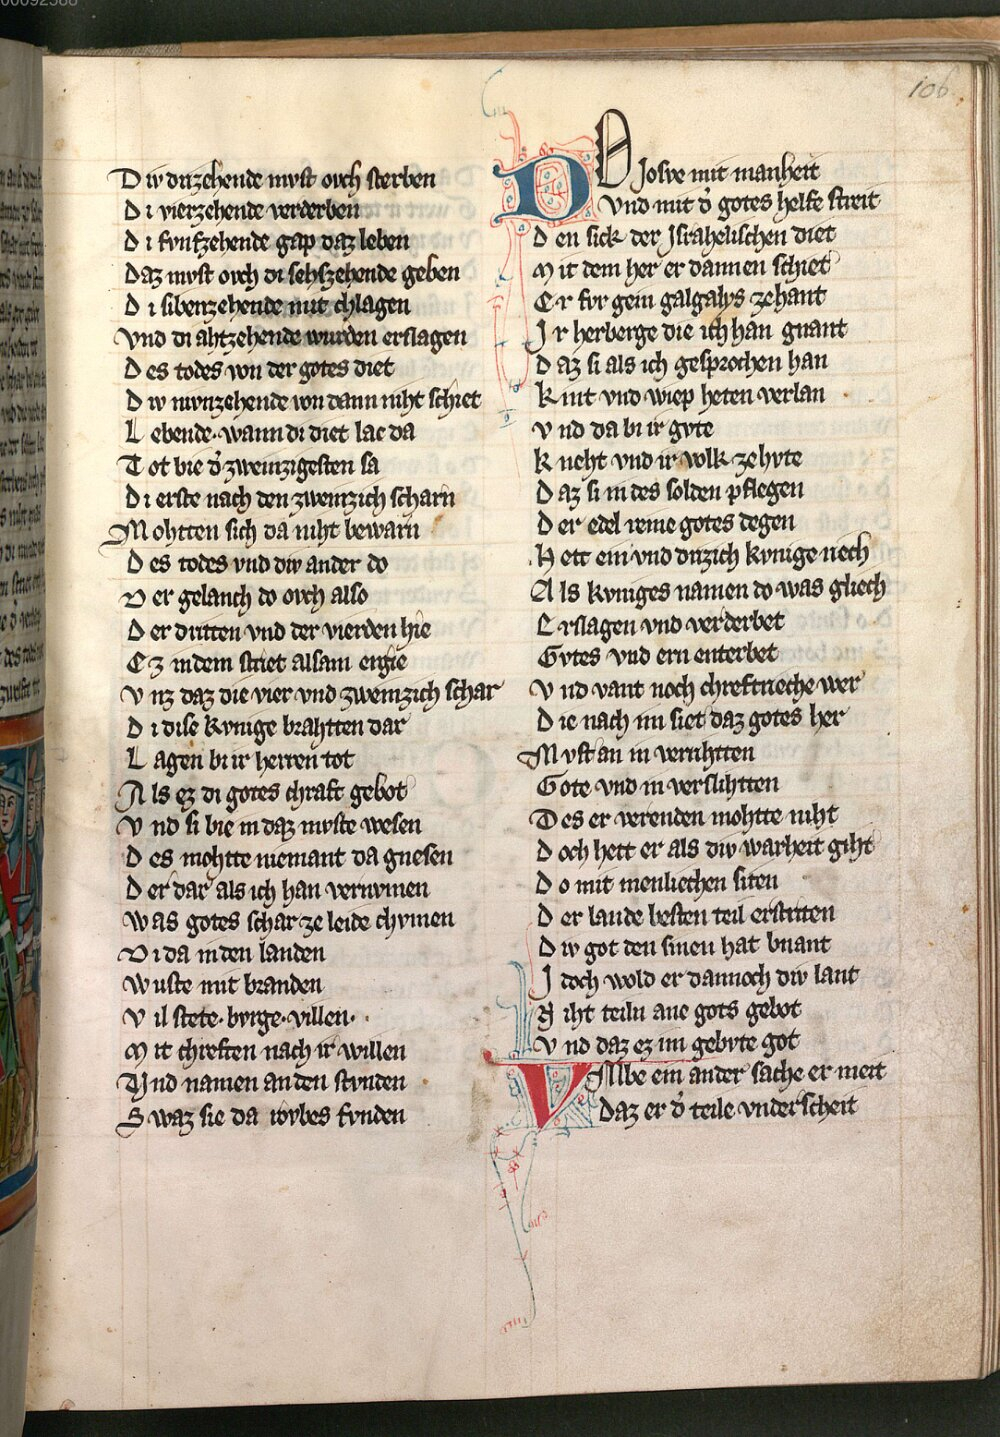 106
Div drizehende mvst ovch sterben
Di vierzehende verderben
Di fvnfzehende gap daz leben
Daz mvst ovch di sehszehende geben
Di sibenzehende mit chlagen
Vnd di ahtzehende wurden erslagen
Des todes von der gotes diet
Div nivnzehende von dann niht schiet
Lebende. wann di diet lac da
Tot bie d̾ zweinzigesten sa
Di erste nach den zweinzich scharn
Mohtten sich da niht bewarn
Des todes vnd div ander do
Der gelanch do ovch also
Der dritten vnd der vierden hie
Ez indem striet alsam ergie
Vnz daz die vier vnd zweinzich schar
Di dise kvnige brahtten dar
Lagen bi ir herren tot
Als ez di gotes chraft gebot
Vnd si bie in daz mvste wesen
Des mohtte niemant da gnesen
Der dar als ich han vernvmen
Was gotes schar ze leide chvmen
Vi da inden landen
Wuste mit branden
Vil stete. bvrge. villen.
Mit chreften nach ir willen
Vnd namen anden stvnden
Swaz sie da lybes fvnden
DO Josve mit manheit
Vnd mit d̾ gotes helfe streit
Den sick der Israhelischen diet
Mit dem her er dannen schiet
Er fvr gein galgalys zehant
Ir herberge die ich han gnant
Daz si als ich gesprochen han
Kint vnd wiep heten verlan
Vnd da bi ir gvte
Kneht vnd ir volk ze hvte
Daz si indes solden pflegen
Der edel reine gotes degen
Hett ein vnd drizich kvnige riech
Als kvniges namen do was gliech
Erslagen vnd verderbet
Gvtes vnd ern enterbet
Vnd vant noch chreftrieche wer
Die nach im siet daz gotes her
Mvst an in verrihtten
Gote vnd in verslihtten
Des er verenden mohtte niht
Doch hett er als div warheit giht
Do mit menliechen siten
Der lande besten teil erstriten
Div got den sinen hat bnant
Idoch wold er dannoch div lant
Niht teiln ane gots gebot
Vnd daz ez im gebvte got
VMbe ein ander sache er meit
Daz er d̾ teile vnderscheit